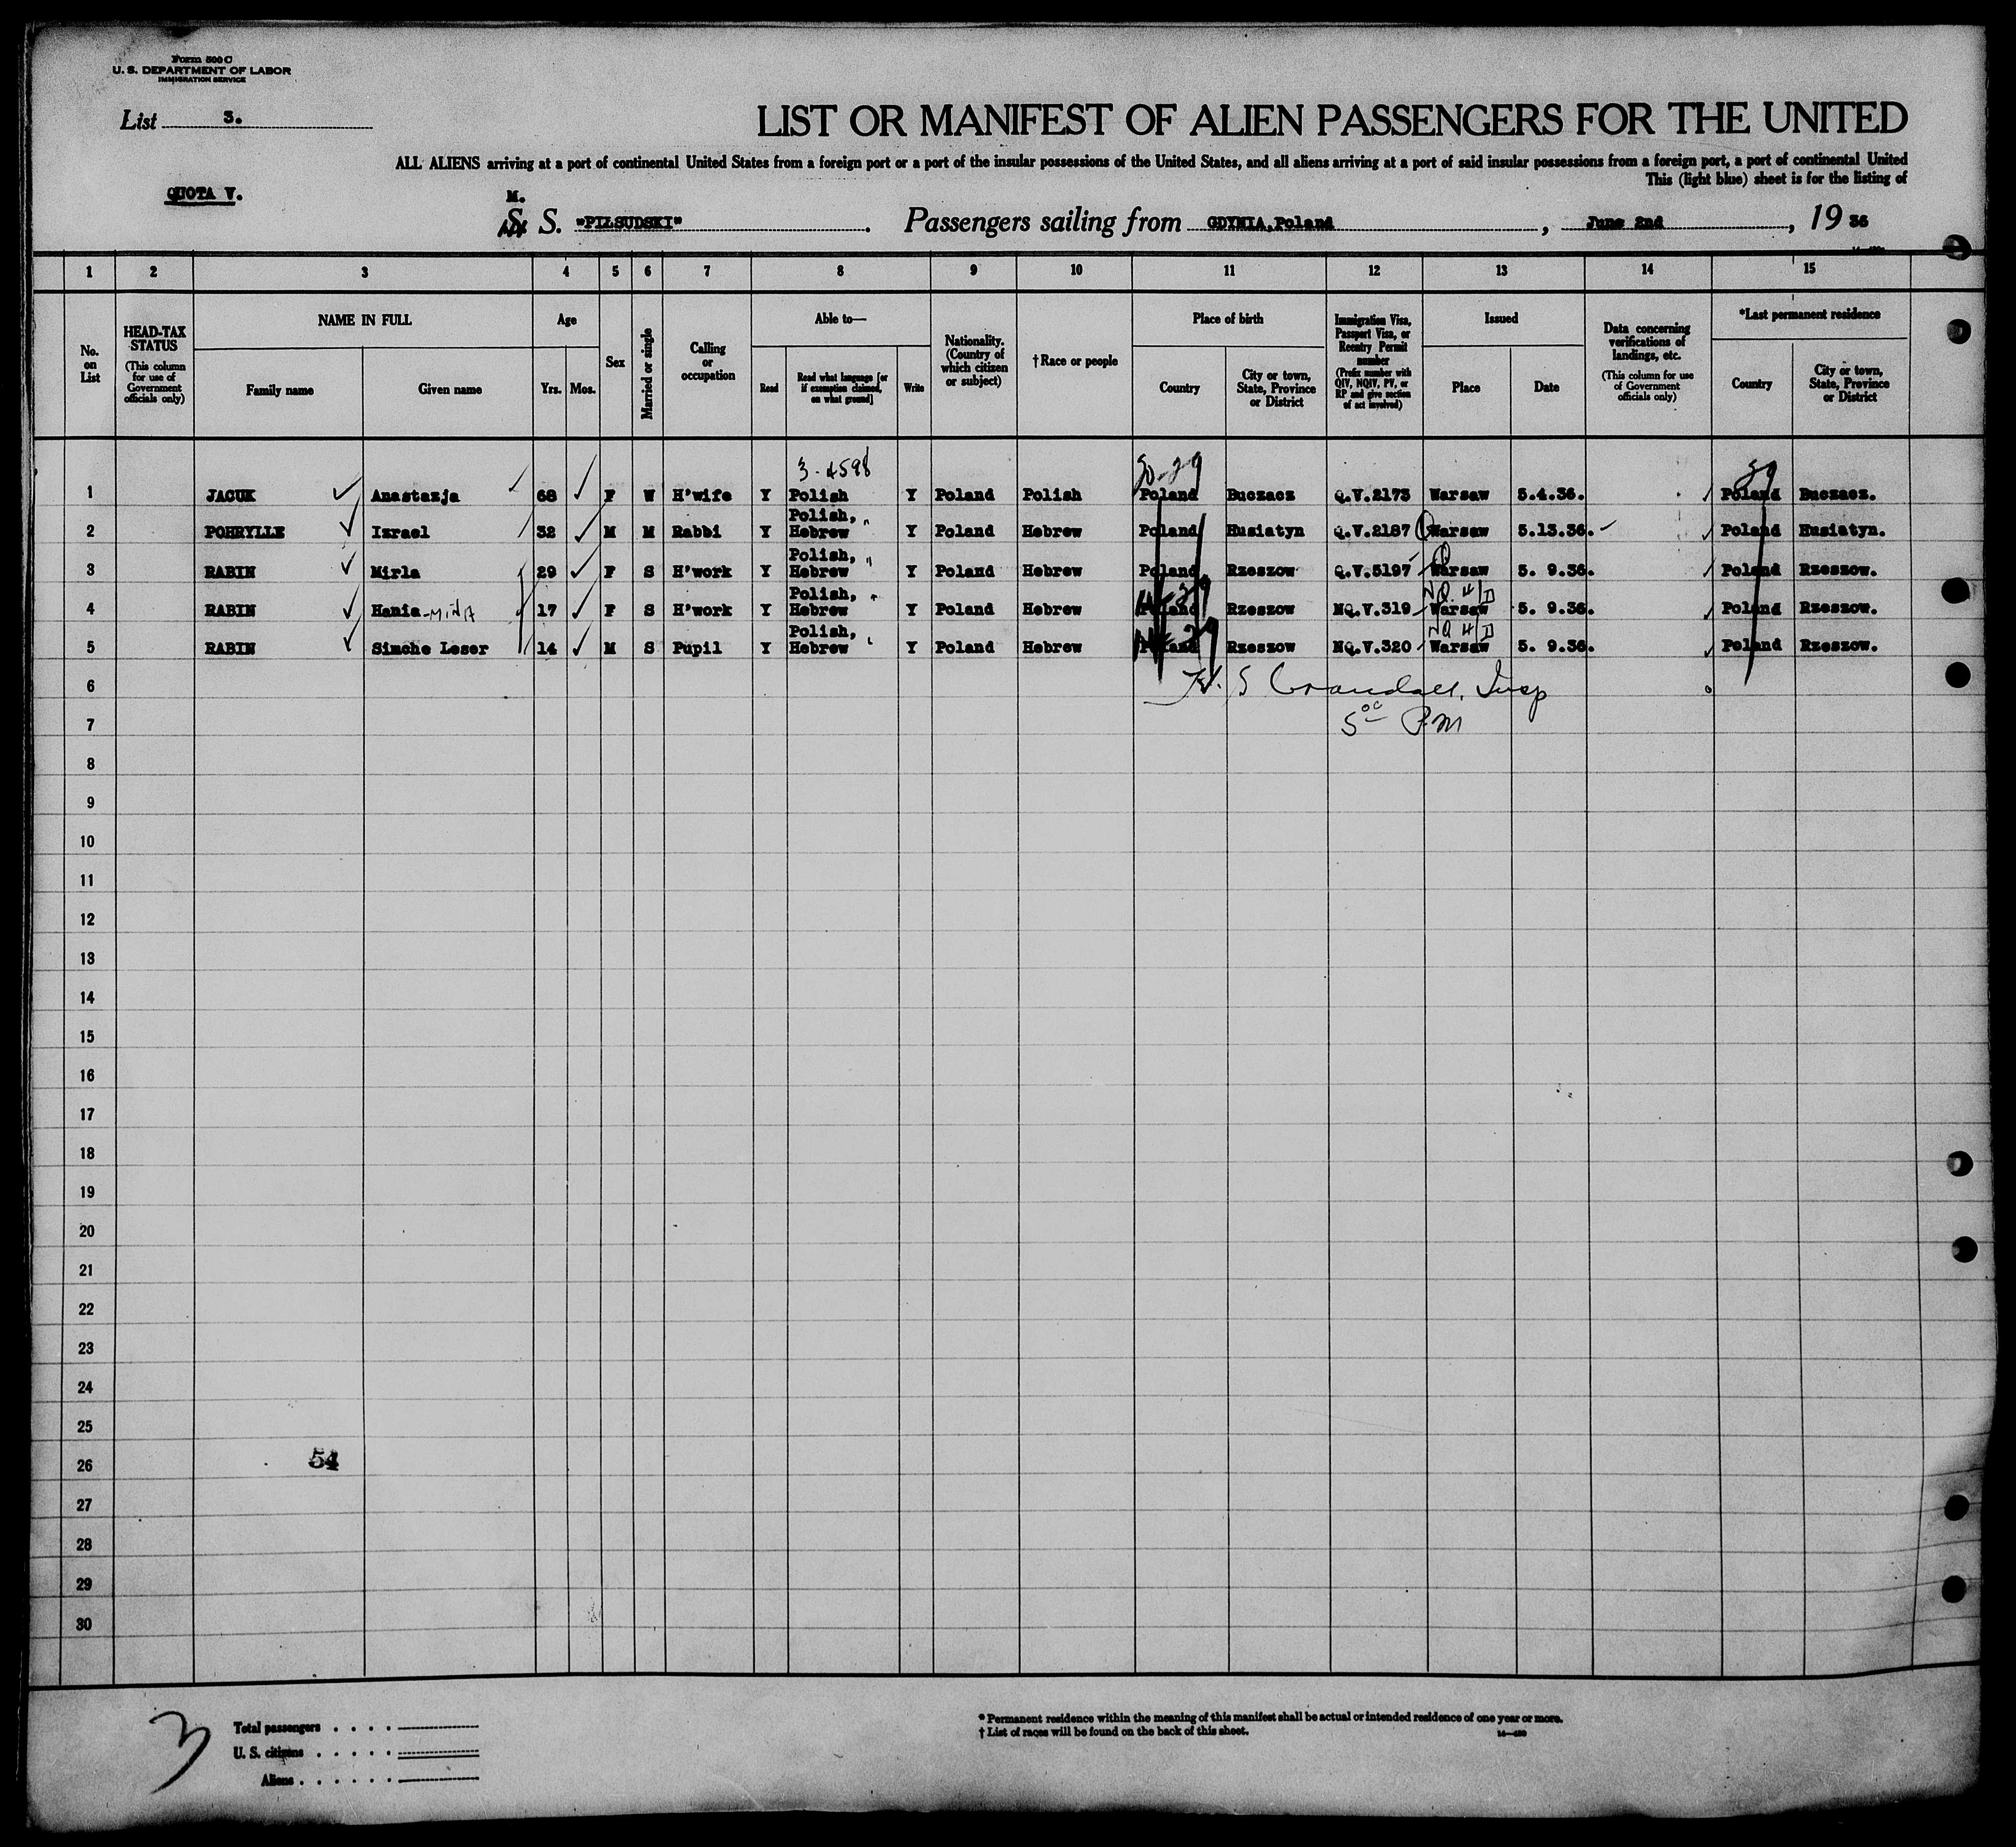 Form 500 C
U. S. DEPARTMENT OF LABOR
IMMIGRATION SERVICE
List 3.
LIST OR MANIFEST OF ALIEN PASSENGERS FOR THE UNITED
ALL ALIENS arriving at a port of continental United States from a foreign port or a port of the insular possessions of the United States, and all aliens arriving at a port of said insular possessions from a foreign port, a port of continental United
This (light blue) sheet is for the listing of
QUOTA V.
M.
S. S. "PIŁSUDSKI". Passengers sailing from GDYNIA, Poland, June 2nd, 19 36
1 2 3 4 5 6 7 8 9 10 11 12 13 14 15
No. on List
HEAD-TAX STATUS (This column for use of Government officials only)
NAME IN FULL
Family name
Given name
Age
Yrs. Mos.
Sex
Married or single
Calling or occupation
Able to—
Read
Read what language [or if exemption claimed, on what ground]
Write
Nationality. (Country of which citizen or subject)
†Race or people
Place of birth
Country
City or town, State, Province or District
Immigration Visa, Passport Visa, or Reentry Permit number (Prefix number with QIV, NQIV, PV, or RP and give section of act involved)
Issued
Place
Date
Data concerning verifications of landings, etc. (This column for use of Government officials only)
*Last permanent residence
Country
City or town, State, Province or District
3-4598
1 JACUK Anastazja 68 F W H'wife Y Polish Y Poland Polish Poland Buczacz Q.V.2173 Warsaw 5.4.36. Poland Buczacz.
2 POHRYLLE Izrael 32 M M Rabbi Y Polish, Hebrew Y Poland Hebrew Poland Husiatyn Q.V.2187 Warsaw 5.13.36. Poland Husiatyn.
3 RABIN Mirla 29 F S H'work Y Polish, Hebrew Y Poland Hebrew Poland Rzeszow Q.V.5197 Warsaw 5. 9.36. Poland Rzeszow.
4 RABIN Hania-MINA 17 F S H'work Y Polish, Hebrew Y Poland Hebrew Poland Rzeszow NQ.V.319 Warsaw 5. 9.36. Poland Rzeszow.
5 RABIN Simche Leser 14 M S Pupil Y Polish, Hebrew Y Poland Hebrew Poland Rzeszow NQ.V.320 Warsaw 5. 9.36. Poland Rzeszow.
6 S Crandall, Insp
7 5 00 P.M
8
9
10
11
12
13
14
15
16
17
18
19
20
21
22
23
24
25
26 54
27
28
29
30
3
Total passengers
U. S. citizens
Aliens
* Permanent residence within the meaning of this manifest shall be actual or intended residence of one year or more.
† List of races will be found on the back of this sheet.